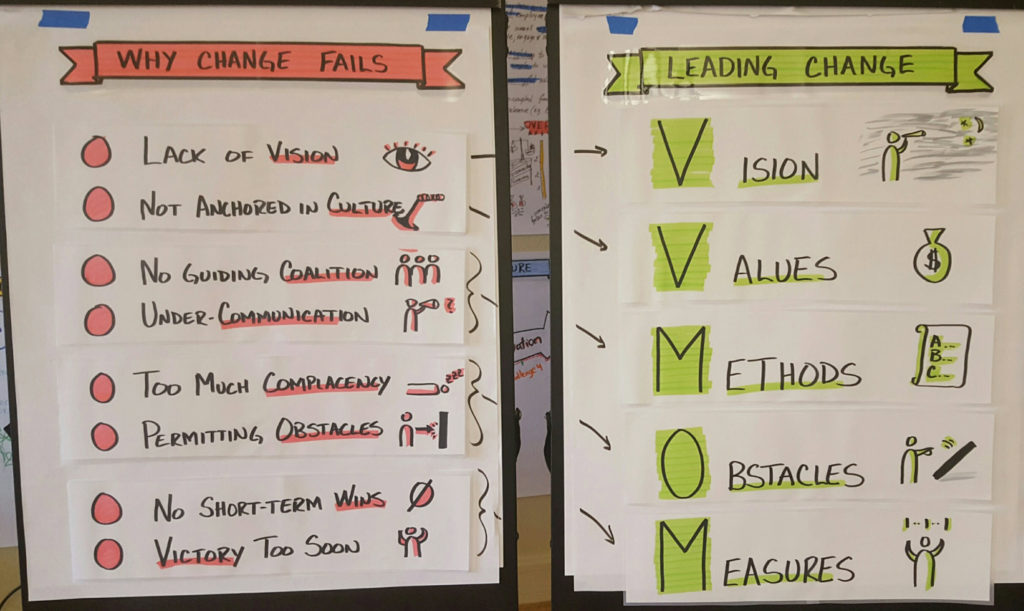 WHY CHANGE FAILS
LACK OF VISION
NOT ANCHORED IN CULTURE
NO GUIDING COALITION
UNDER-COMMUNICATION
?
TOO MUCH COMPLACENCY
ZZZ
PERMITTING OBSTACLES
NO SHORT-TERM WINS
VICTORY TOO SOON
LEADING CHANGE
VISION
VALUES
$
METHODS
A
B..
C...
OBSTACLES
MEASURES